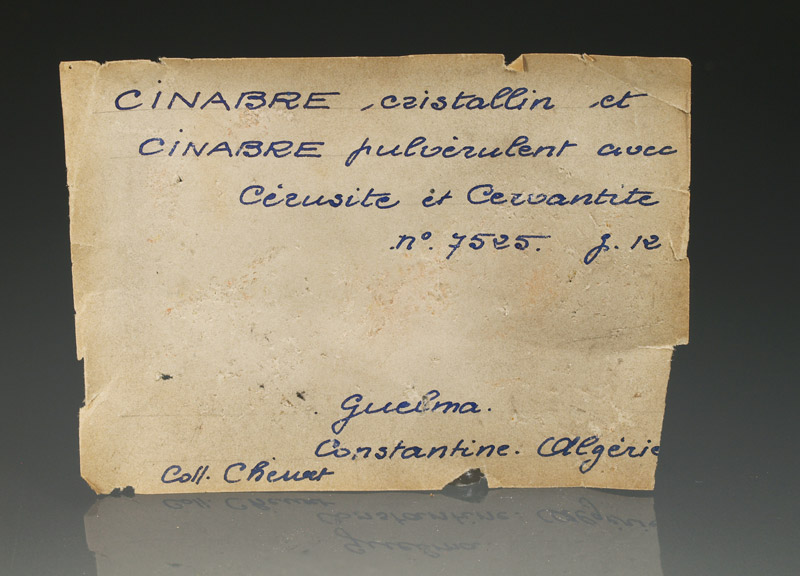 CINABRE cristallin et
CINABRE pulvérulent avec
Cérusite et Cervantite
n° 7525. g. 12
Guelma.
Constantine. Algérie
Coll.